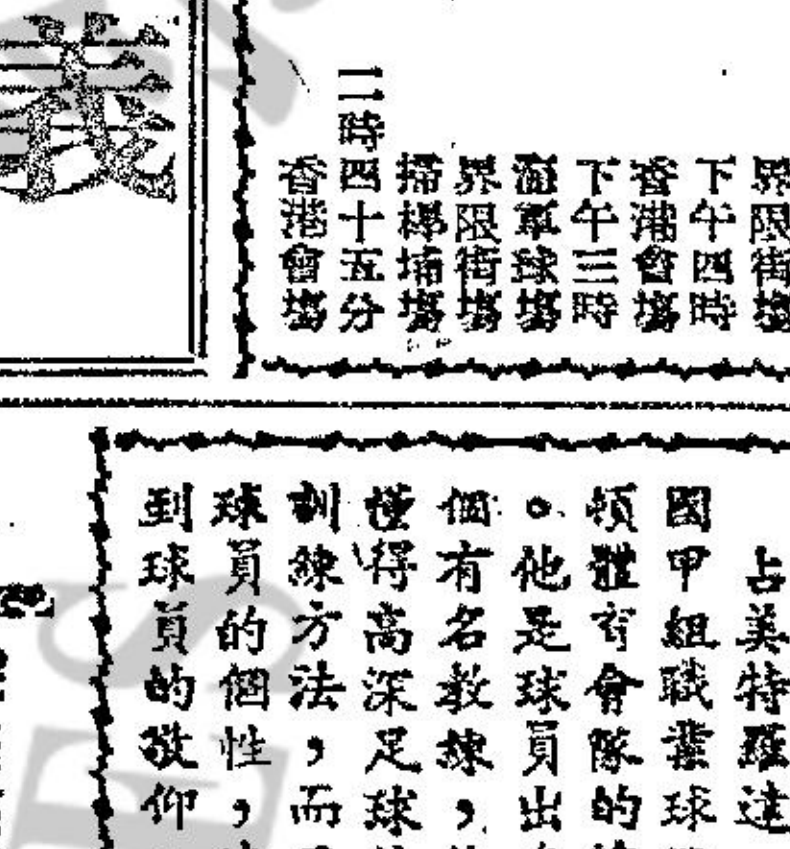 界限街塲
下午四時
香港會塲
下午三時
海軍球塲
界限街塲
掃桿埔塲
二時四十五分
香港會塲
義
占美特羅達
國甲組職業球
頓體育會隊的
。他是球員出
個有名教練，
懂得高深足球
訓練方法，而
球員的個性，
到球員的敬仰
ES